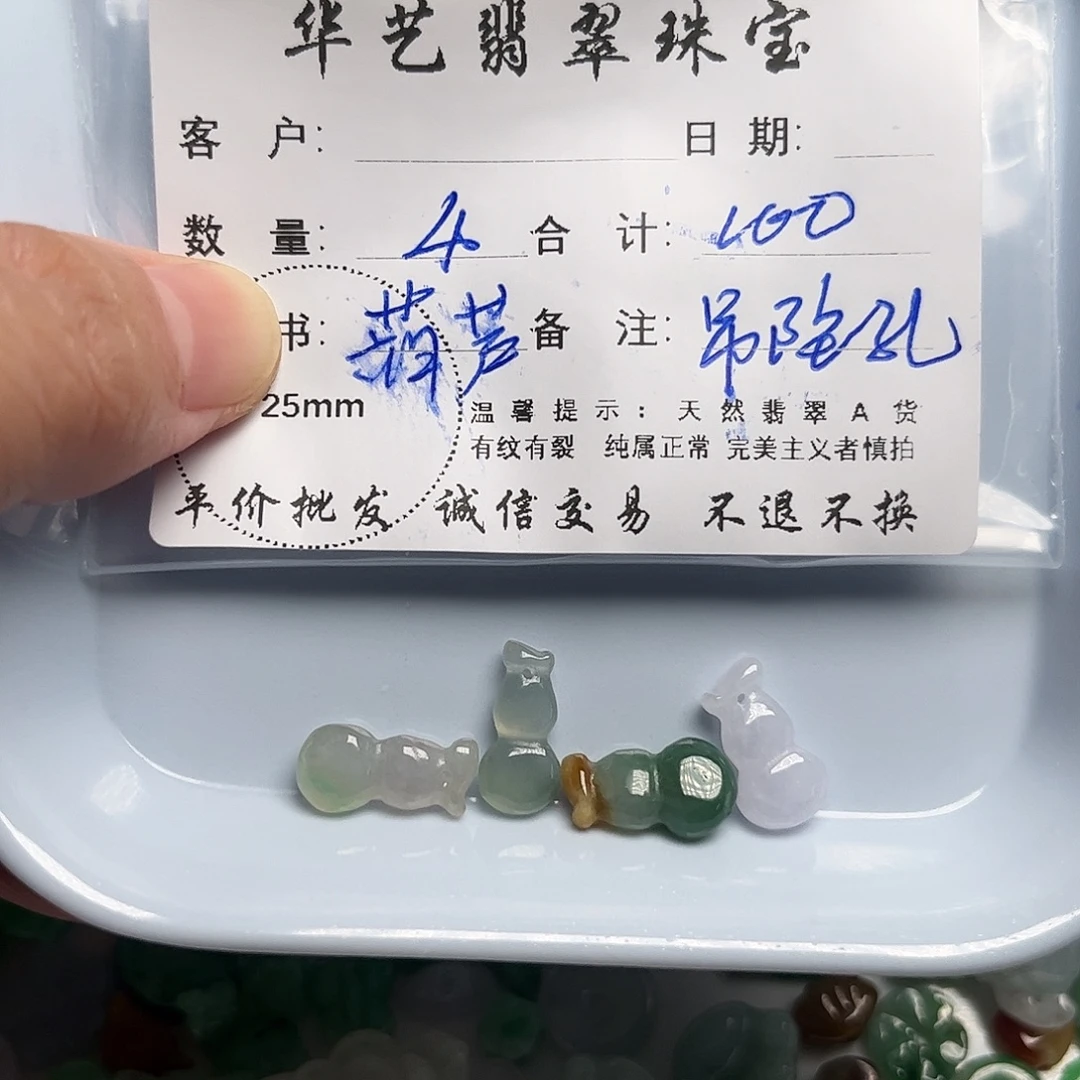 华艺翡翠珠宝
客 户： 日 期：
数 量： 4 合 计： 100
书： 葫芦 备 注： 吊隐孔
25mm
温馨提示：天然翡翠A货
有纹有裂 纯属正常 完美主义者慎拍
平价批发 诚信交易 不退不换